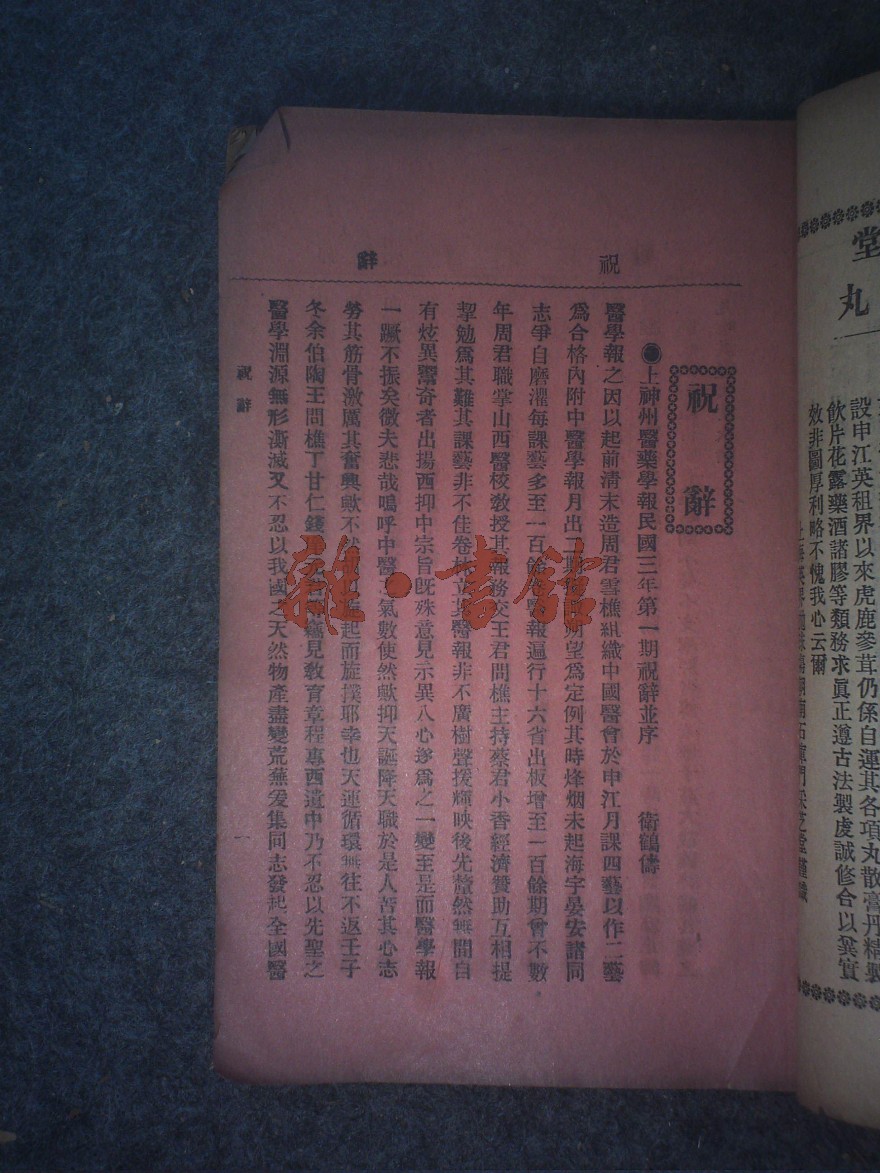 堂
丸
設申江英租界以來虎鹿參茸仍係自運其各項丸散膏丹精製
飲片花露藥酒諸膠等類務求眞正遵古法製虔誠修合以冀實
效非圖厚利略不愧我心云爾
祝辭
祝辭
●上神州醫藥學報民國三年第一期祝辭並序 衛鶴儔
醫學報之因以起前清末造周君雪樵組織中國醫會於申江月課四藝以作二藝
爲合格內附中醫學報月出二期 朔望爲定例其時烽烟未起海宇晏安諸同
志爭自磨濯每課藝多至一百餘 醫報遍行十六省出板增至一百餘期會不數
年周君職掌山西醫校敎授其報務交王君問樵主持蔡君小香經濟贊助互相提
挈勉爲其難其課藝非不佳卷 立其醫報非不廣樹聲援輝映後光 然無間自
有炫異驚奇者出揚西抑中宗旨既殊意見示異人心遂爲之一變至是而醫學報
一蹶不振矣微夫悲哉嗚呼中醫 氣數使然歟抑天誕降天職於是人苦其心志
勞其筋骨激厲其奮興歟不然 起而旋撲耶幸也天運循環無往不返壬子
冬余伯陶王問樵丁甘仁錢 敎育章程專西遺中乃不忍以先聖之
醫學淵源無形澌滅又不忍以我國之天然物產盡變荒蕪爰集同志發起全國醫
祝辭
一
雜·書館